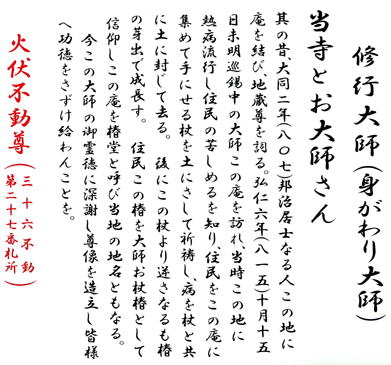 修行大師(身がわり大師)
当寺とお大師さん
其の昔、大同二年(八〇七)邦治居士なる人この地に
庵を結び、地蔵尊を祠る。弘仁六年(八一五)十月十五
日未明巡錫中の大師この庵を訪れ、当時この地に
熱病流行し住民の苦しめるを知り、住民をこの庵に
集めて手にせる杖を土にさして祈祷し、病を杖と共
に土に封じて去る。 後にこの杖より逆さなるも椿
の芽出で成長す。 住民この椿を大師お杖椿として
信仰しこの庵を椿堂と呼び当地の地名ともなる。
今この大師の御霊徳に深謝し尊像を造立し皆様
へ功徳をさずけ給わんことを。
火伏不動尊(三十六不動
第二十七番札所)